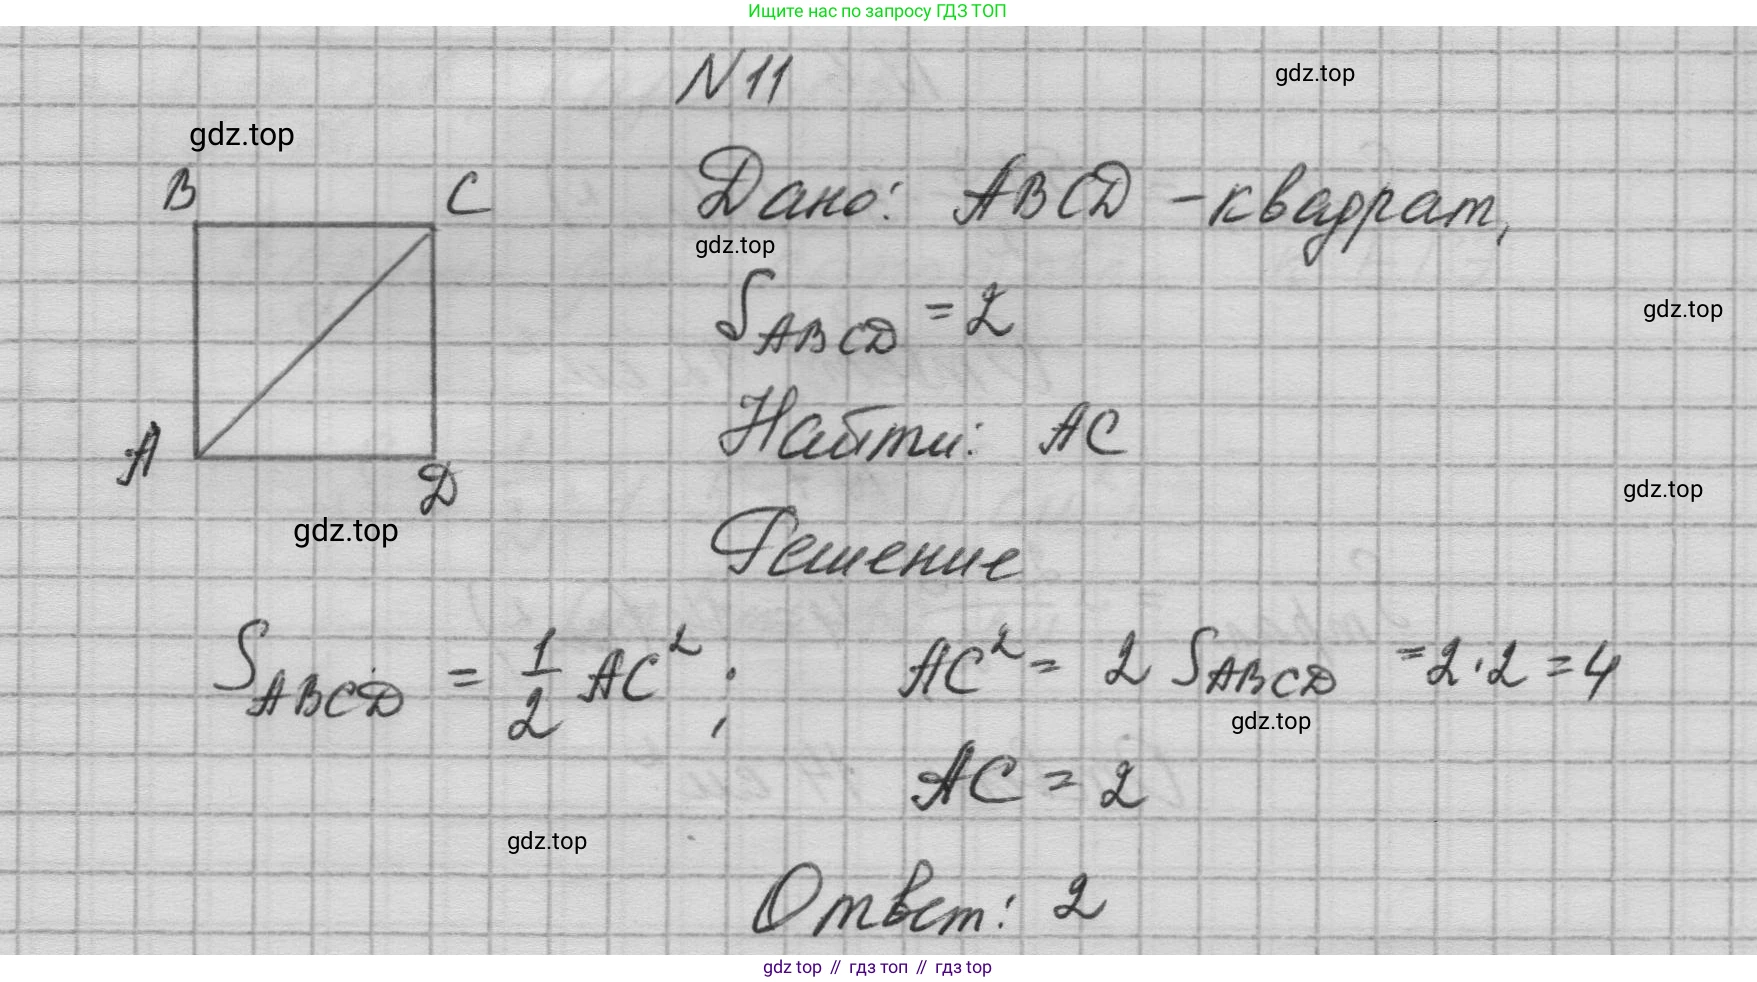 Ищите нас по запросу ГДЗ ТОП
N 11
gdz.top
gdz.top
B C
Дано: ABCD - квадрат,
gdz.top
S ABCD = 2
gdz.top
Найти: AC
A D
gdz.top
gdz.top
Решение
S ABCD = 1/2 AC² ; AC² = 2 S ABCD = 2 · 2 = 4
gdz.top
AC = 2
gdz.top
Ответ: 2
gdz top // гдз топ // гдз top